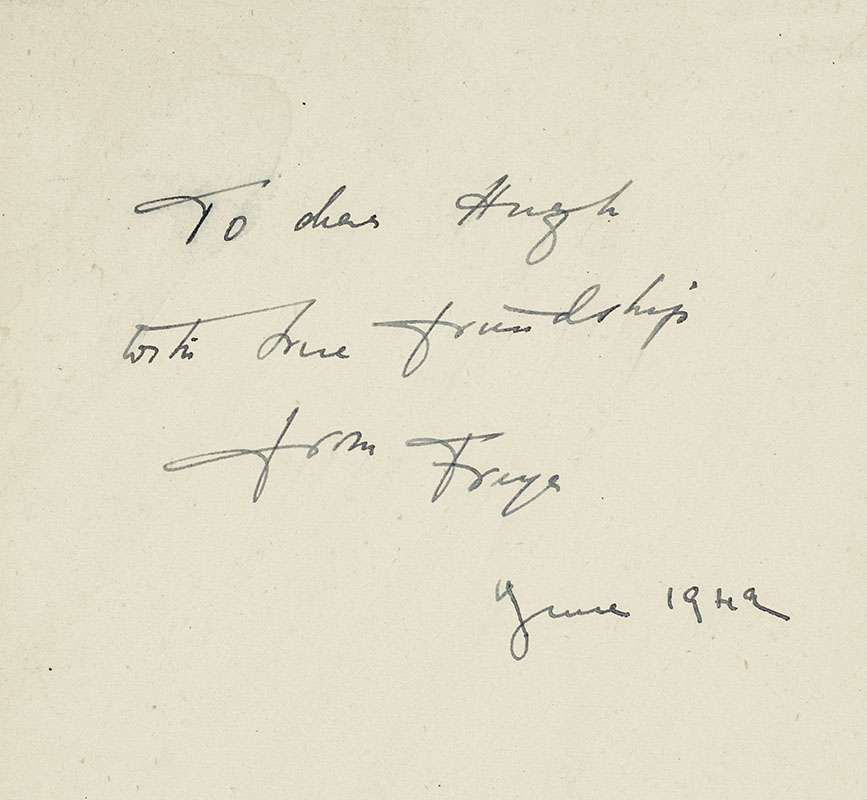 To dear Hugh
with true friendship
from Freya
June 1942